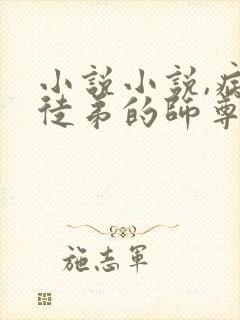 小說小說,病
徒弟的師尊
施志軍